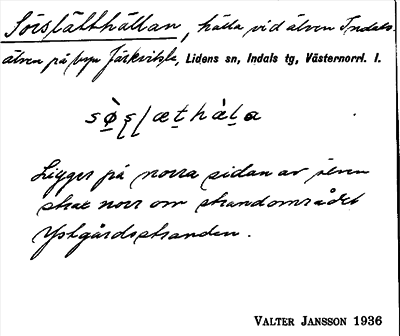 Sörslätthällan, hälla vid älven Indals-
älven på byn Järkvitsle, Lidens sn, Indals tg, Västernorrl. l.
Ligger på norra sidan av älven
strax norr om strandområdet
Ystgårdsstranden.
VALTER JANSSON 1936